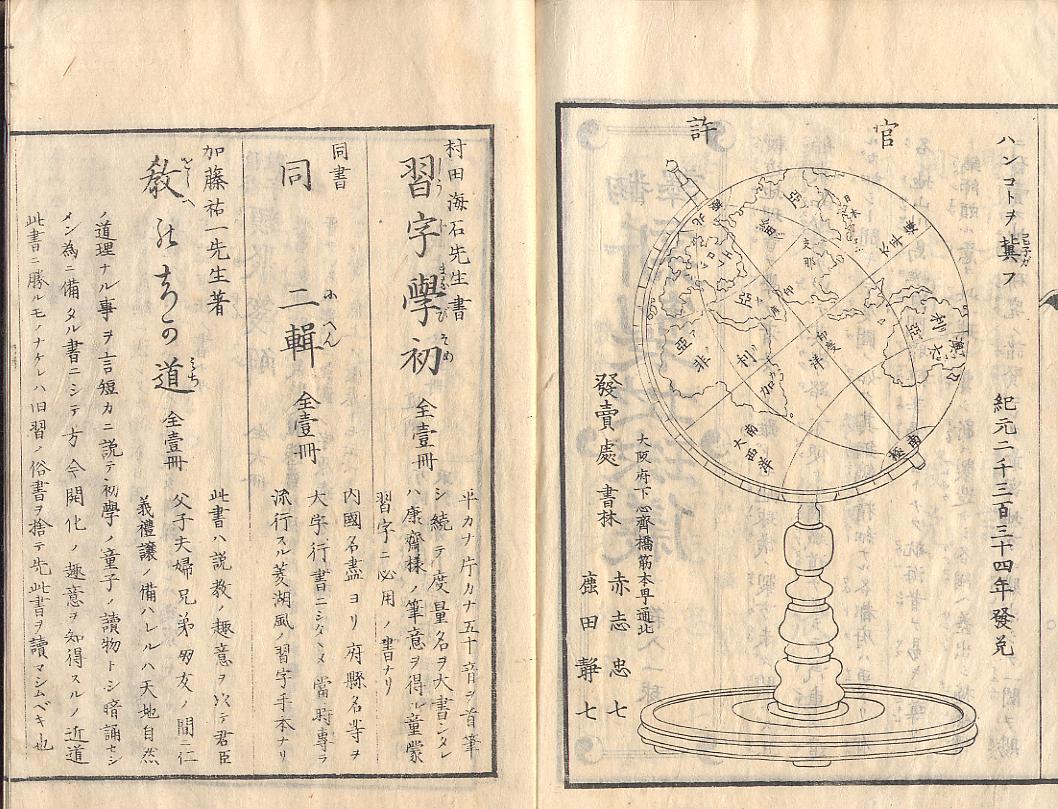 ハンコトヲ冀フ
紀元二千三百三十四年發兌
官許
日本
支那
亞
細
亞
印度洋
亞
非
利
加
南大西洋
南極
大阪府下心齊橋筋本町通北
發賣處
書林
赤志忠七
鹿田靜七
村田海石先生書
習字學初
全壹冊
平カナ片カナ五十音ヲ首筆
シ続テ度量名ヲ大書シタレ
ハ康齋様ノ筆意ヲ得ル童蒙
習字ニ必用ノ書ナリ
同書
同二輯
にへん
全壹冊
内國名盡ヨリ府縣名等ヲ
大字行書ニシタヽメ當時專ラ
流行スル菱湖風ノ習字手本ナリ
加藤祐一先生著
教能ちかの道
をしへ
みち
全壹冊
此書ハ説教ノ趣意ヲ以テ君臣
父子夫婦兄弟朋友ノ間ニ仁
義禮讓ノ備ハレルハ天地自然
ノ道理ナル事ヲ言短カニ説テ初學ノ童子ノ讀物トシ暗誦セシ
メン為ニ備タル書ニシテ方今開化ノ趣意ヲ知得スルノ近道
此書ニ勝ルモノナケレハ旧習ノ俗書ヲ捨テ先此書ヲ讀マシムベキ也